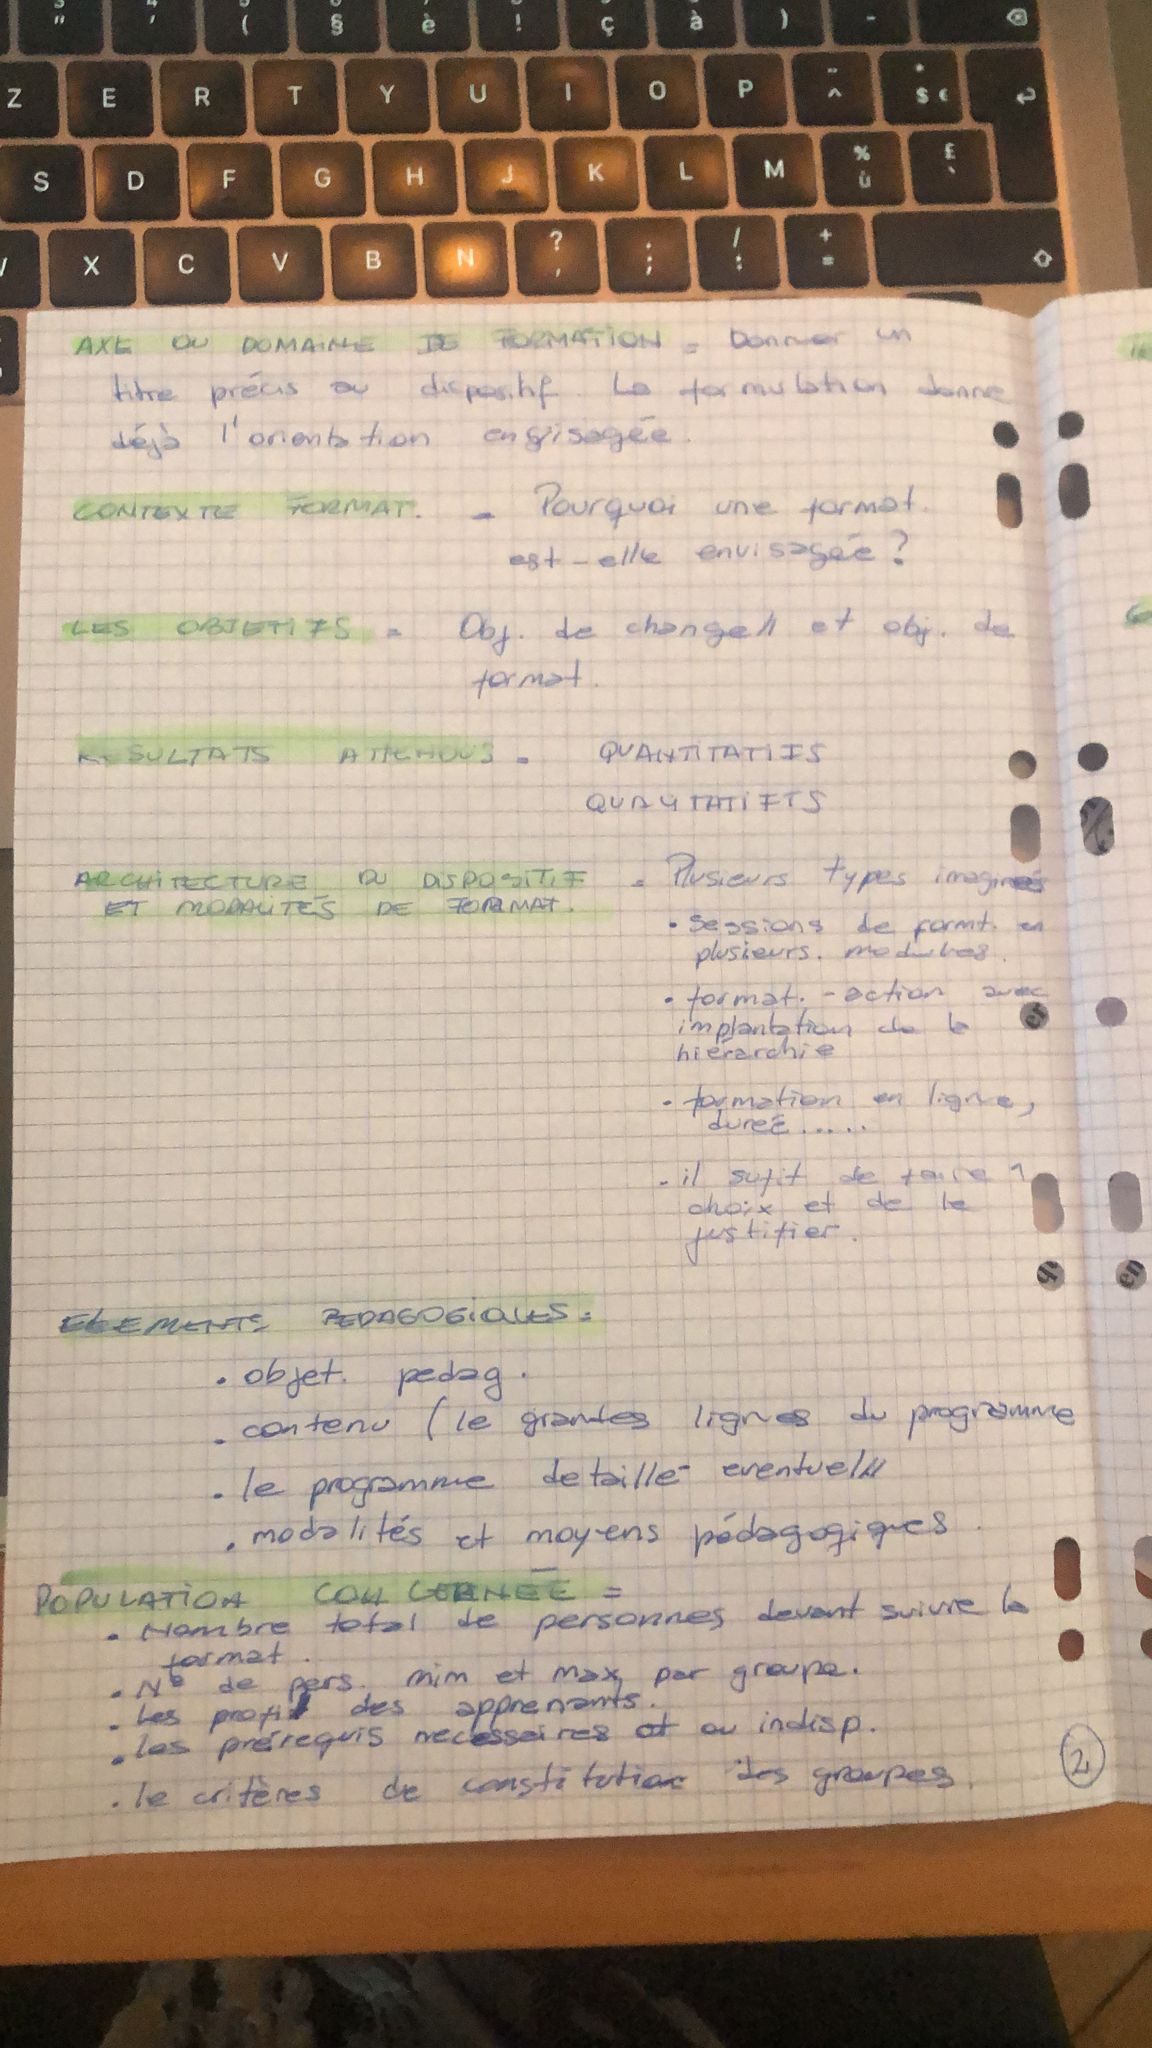 " ' ( § è ! ç à ) -
Z E R T Y U I O P ¨ ^ * $ €
S D F G H J K L M % ù £ `
X C V B N ? , . ; / : + =
AXE OU DOMAINE DE FORMATION = Donner un
titre précis au dispositif. La formulation donne
déjà l'orientation envisagée.
CONTEXTE FORMAT. = Pourquoi une format.
est-elle envisagée ?
LES OBJETIFS = Obj. de change// et obj. de
format.
RESULTATS ATTENDUS = QUANTITATIFS
QUALITATIFTS
ARCHITECTURE DU DISPOSITIF = Plusieurs types imaginés
ET MODALITÉS DE FORMAT.
• sessions de formt. en
plusieurs. modules.
• format. - action avec
implantation de la
hiérarchie
• formation en ligne,
dureé.....
• il sufit de faire 1
choix et de le
justifier.
ELEMENTS PEDAGOGIQUES =
• objet. pedag.
• contenu (le grandes lignes du programme
• le programme detaillé eventuel//
• modalités et moyens pédagogiques.
POPULATION CONCERNÉE =
• Nombre total de personnes devant suivre la
format.
• N° de pers. mim et max, par groupe.
• Les profil des apprenants.
• les prérequis necessaires et ou indisp.
• le critères de constitution des groupes.
2